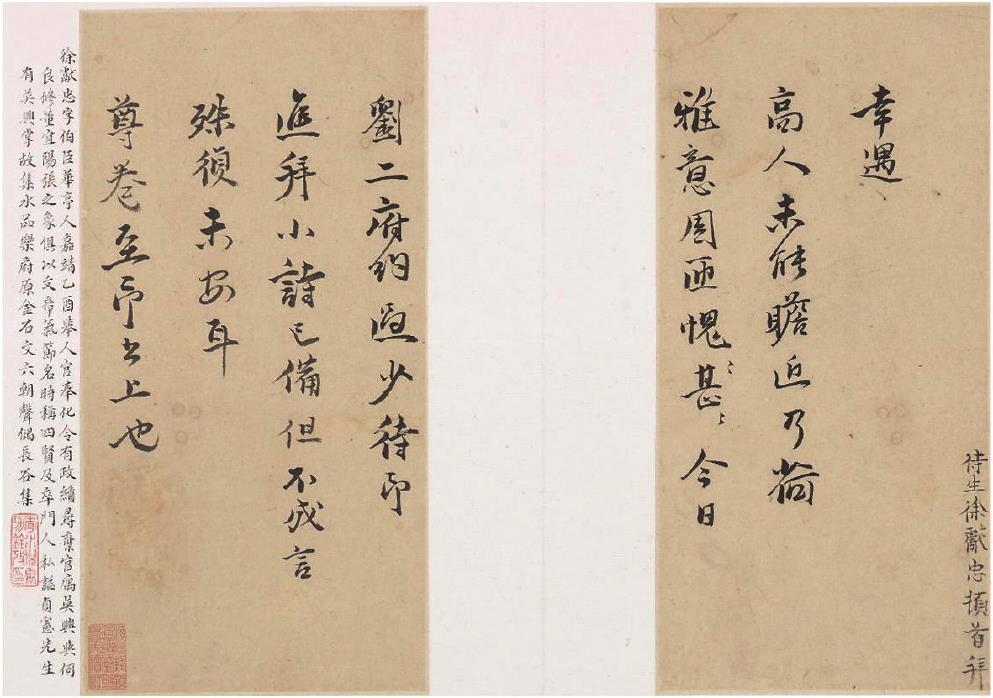 侍生徐獻忠頓首拜
幸遇
高人未能瞻近乃荷
雅意周匝愧甚〻今日
劉二府約過少待即
進拜小詩已備但不成言
殊須未安耳
尊卷至即書上也
徐獻忠字伯臣華亭人嘉靖乙酉舉人官奉化令有政績尋棄官寓吳興與何
良修董宜陽張之象俱以文章氣節名時稱四賢及卒門人私諡貞憲先生
有吳興掌故集水品樂府原金石文六朝聲偶長谷集